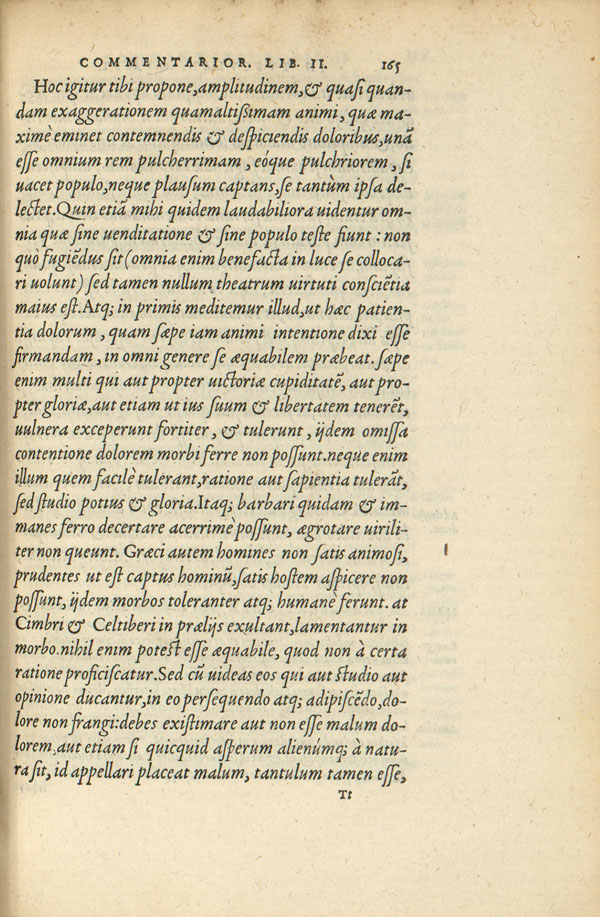 COMMENTARIOR. LIB. II. 165
Hoc igitur tibi propone,amplitudinem,& quasi quan-
dam exaggerationem quamaltißimam animi, quæ ma-
ximè eminet contemnendis & despiciendis doloribus,unā
esse omnium rem pulcherrimam, eóque pulchriorem, si
uacet populo,neque plausum captans,se tantùm ipsa de-
lectet.Quin etiā mihi quidem laudabiliora uidentur om-
nia quæ sine uenditatione & sine populo teste fiunt : non
quò fugiēdus sit (omnia enim benefacta in luce se colloca-
ri uolunt) sed tamen nullum theatrum uirtuti consciētia
maius est.Atq; in primis meditemur illud,ut hæc patien-
tia dolorum, quam sæpe iam animi intentione dixi esse
firmandam, in omni genere se æquabilem præbeat. sæpe
enim multi qui aut propter uictoriæ cupiditatē, aut pro-
pter gloriæ,aut etiam ut ius suum & libertatem tenerēt,
uulnera exceperunt fortiter, & tulerunt, ijdem omissa
contentione dolorem morbi ferre non possunt.neque enim
illum quem facilè tulerant,ratione aut sapientia tulerāt,
sed studio potius & gloria.Itaq; barbari quidam & im-
manes ferro decertare acerrimè possunt, ægrotare uirili-
ter non queunt. Græci autem homines non satis animosi,
prudentes ut est captus hominū,satis hostem aspicere non
possunt, ijdem morbos toleranter atq; humanè ferunt. at
Cimbri & Celtiberi in prælijs exultant,lamentantur in
morbo.nihil enim potest esse æquabile, quod non à certa
ratione proficiscatur.Sed cū uideas eos qui aut studio aut
opinione ducantur,in eo persequendo atq; adipiscēdo,do-
lore non frangi:debes existimare aut non esse malum do-
lorem,aut etiam si quicquid asperum alienúmq; à natu-
ra sit, id appellari placeat malum, tantulum tamen esse,
Tt